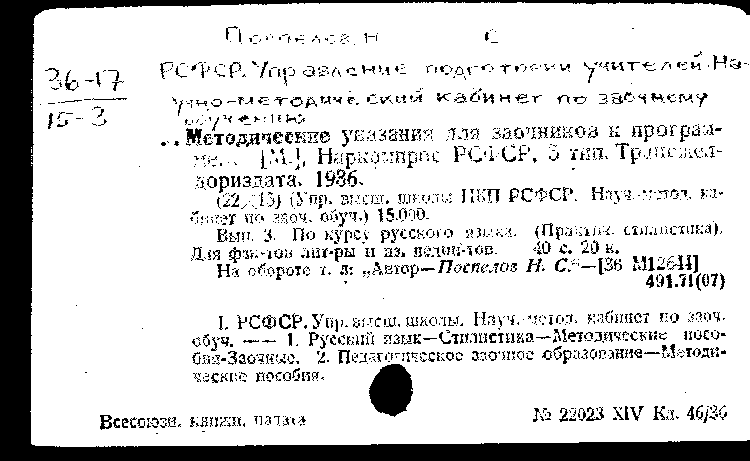 Поспелов, Н С
36-17
15-3
РСФСР. Управление подготовки учителей. На-
учно-методический кабинет по заочному
обучению
..Методические указания для заочников к програм-
ме... [М.], Наркомпрос РСФСР, 5 тип. Трансжел-
дориздата, 1936.
(22×15) (Упр. высш. школы НКП РСФСР. Науч.-метод. ка-
бинет по заоч. обуч.) 15.000.
Вып. 3. По курсу русского языка. (Практич. стилистика).
Для фак-тов лит-ры и яз. педин-тов. 40 с. 20 к.
На обороте т. л: „Автор—Поспелов Н. С."—[36 М126Н]
491.71(07)
I. РСФСР. Упр. высш. школы. Науч.-метод. кабинет по заоч.
обуч. —— 1. Русский язык—Стилистика—Методические посо-
бия-Заочные. 2. Педагогическое заочное образование—Методи-
ческие пособия.
Всесоюзн. книжн. палата № 22023 XIV Кл. 46/36